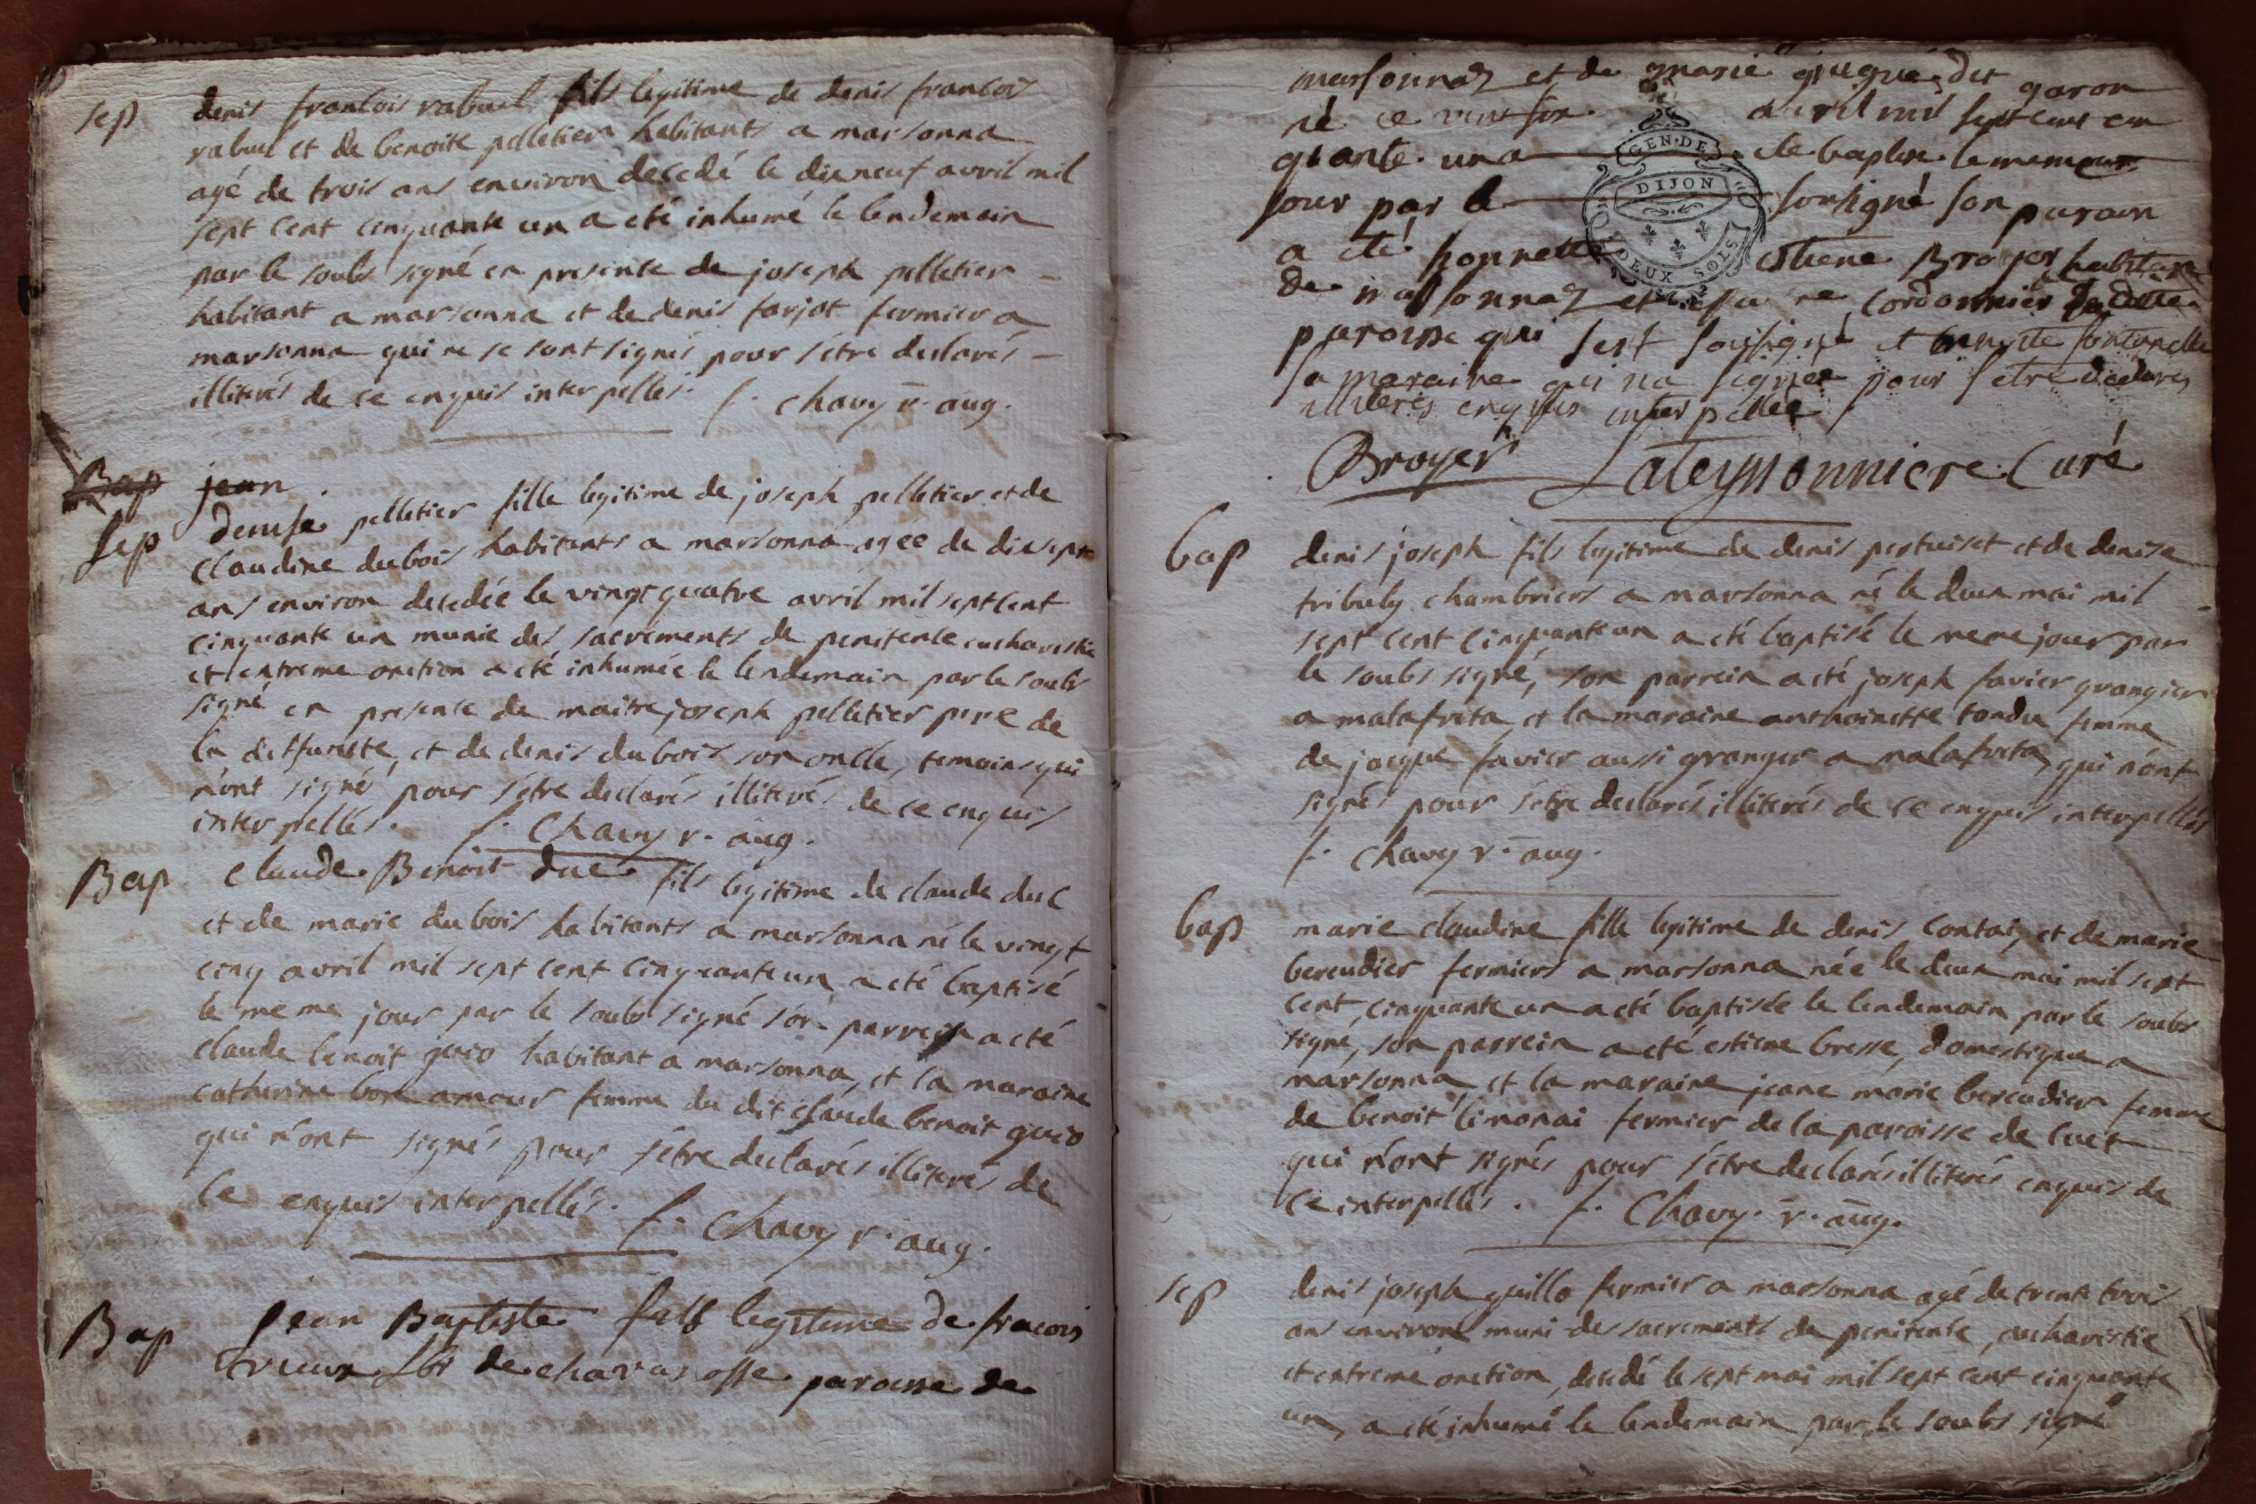 sep denis francois rabuel fils legitime de denis francois
rabuel et de benoite pelletier habitants a marsonna
agé de trois ans environ decedé le dixneuf avril mil
sept cent cinquante un a eté inhumé le lendemain
par le soubs signé en presence de joseph pelletier
habitant a marsonna et de denis farjot fermier a
marsonna qui ne se sont signés pour s'étre declarés
illiterés de ce enquis interpellés. f. chavy r. aug.
Bap jean
sep denise pelletier fille legitime de joseph pelletier et de
claudine dubois habitants a marsonna agée de dixsept
ans environ decedée le vingt quatre avril mil sept cent
cinquante un munie des sacrements de penitence eucharistie
et extreme onction a eté inhumée le lendemain par le soubs
signé en presence de maitre joseph pelletier pere de
la deffuncte, et de denis dubois son oncle, temoins qui
n'ont signé pour s'étre declarés illiterés de ce enquis
interpellés. f. Chavy r. aug.
Bap Claude Benoit duc fils legitime de claude duc
et de marie dubois habitants a marsonna né le vingt
cinq avril mil sept cent cinquante un a eté baptisé
le meme jour par le soubs signé son parrein a eté
claude benoit habitant a marsonna, et la maraine
catherine bon amour femme du dit claude benoit
qui n'ont signés pour s'étre declarés illiterés de
ce enquis interpellés. f. Chavy r. aug.
Bap Jean Baptiste fils legitime de
de paroisse de
marsonnaz et de marie dit garon
né ce avril mil sept cent cin
quante un a eté baptisé le meme
jour par le soussigné son parain
a eté honnette etiene Broyer habitan
de marsonnaz et cordonnier
paroisse qui sest sousigné et
sa maraine qui na signée pour setre declarés
illiterés enquis interpellée
GEN. DE
DIJON
DEUX SOLS
Broyer Lateyssonniere Curé
bap denis joseph fils legitime de denis pertuiset et de denise
tribuly chambriers a marsonna né le deux mai mil
sept cent cinquante un a eté baptisé le meme jour par
le soubs signé, son parrein a eté joseph favier grangier
a malafreta et la maraine anthoinette tondu femme
de jacque favier aussi granger a malafreta qui n'ont
signés pour s'étre declarés illiterés de ce enquis interpellés
f. Chavy r. aug.
bap marie claudine fille legitime de denis contai, et de marie
bereudier fermiers a marsonna née le deux mai mil sept
cent, cinquante un a eté baptisée le lendemain par le soubs
signé, son parrein a eté estiene bresse, domestique a
marsonna, et la maraine jeane marie bereudier femme
de benoit limonai fermier de la paroisse de cuet
qui n'ont signés pour s'étre declarés illiterés enquis de
ce interpellés. f. Chavy. r. aug.
sep denis joseph guillo fermier a marsonna agé de trente trois
ans environ muni des sacrements de penitence, eucharistie
et extreme onction, decedé le sept mai mil sept cent cinquante
un, a eté inhumé le lendemain par le soubs signé